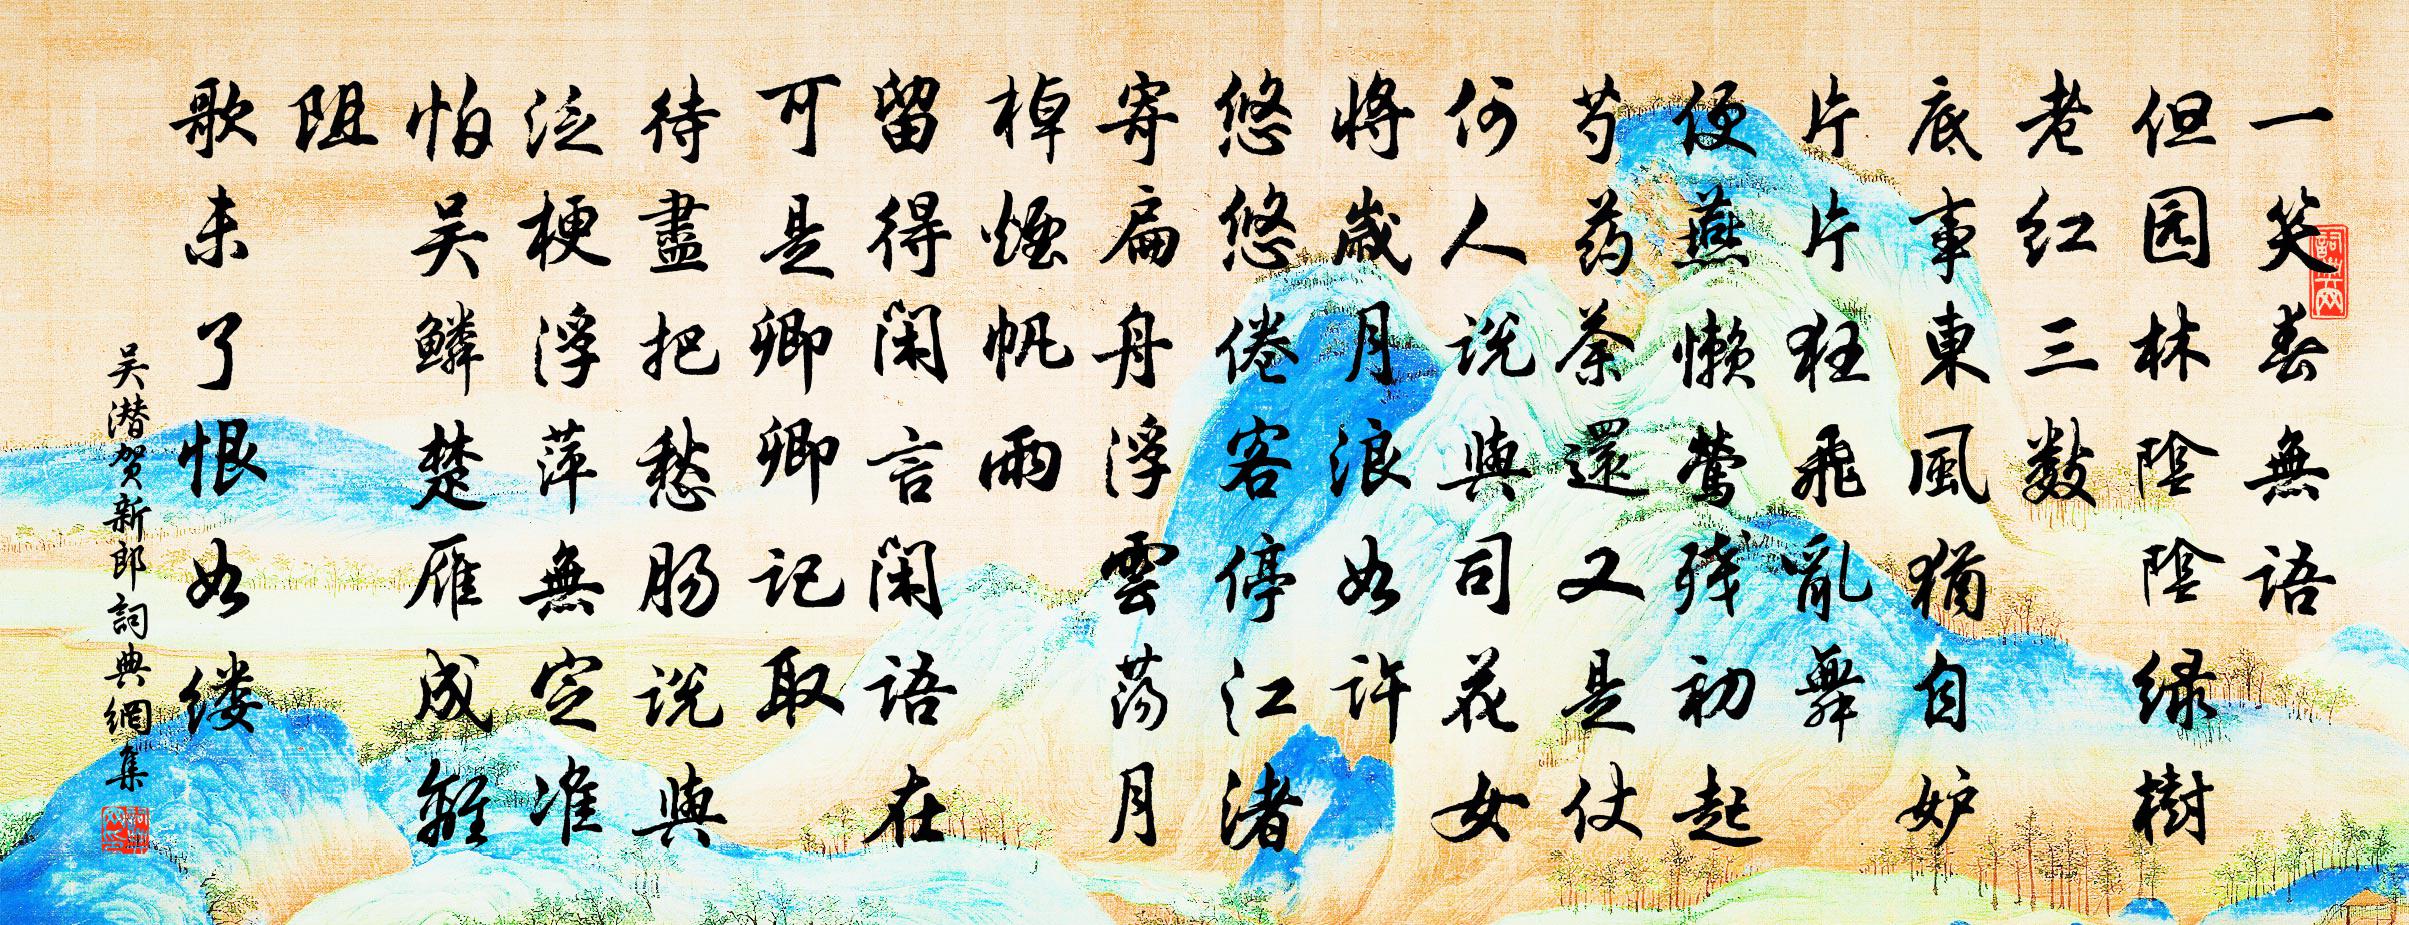 一笑春無語
但园林陰陰緑樹
老红三數
底事東風猶自妒
片片狂飛亂舞
便燕懒莺残初起
芍药荼還又是
何人説與司花女
將歲月浪如許
悠悠倦客停江渚
寄扁舟浮雲蕩月
棹煙帆雨
留得闲言闲語在
可是卿卿記取
待盡把愁肠説與
泛梗浮萍無定准
怕吴鳞楚雁成難
阻
歌未了恨如缕
吴潜贺新郎詞典網集